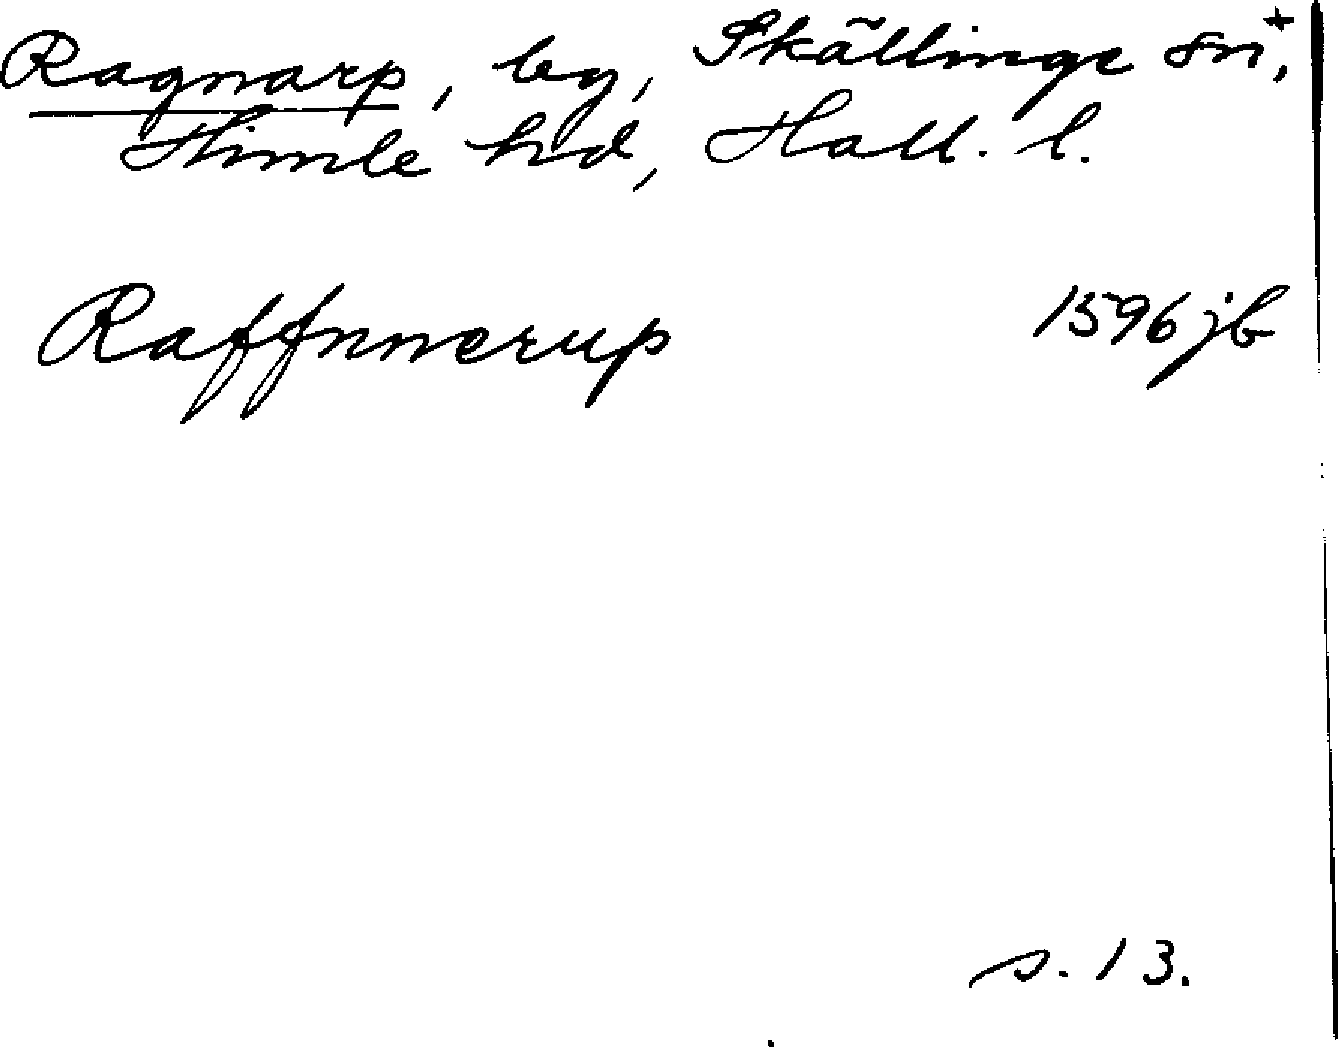 Ragnarp, by, Skällinge sn+,
Himle hd, Hall. l.
Raffnnerup 1596 jb
s. 13.